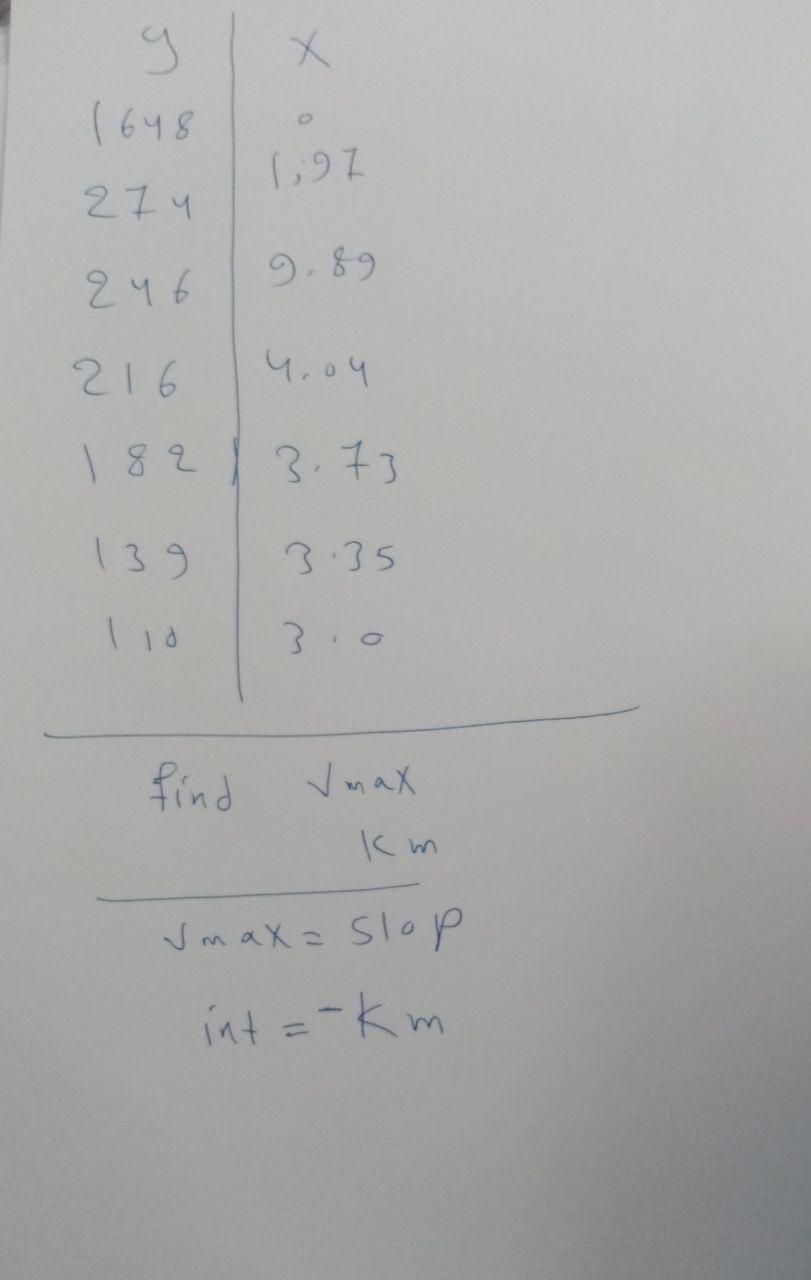 y x
1648 0
274 1,97
246 9.89
216 4.04
182 3.73
139 3.35
110 3.0
find Vmax
Km
Vmax = slop
int = -Km